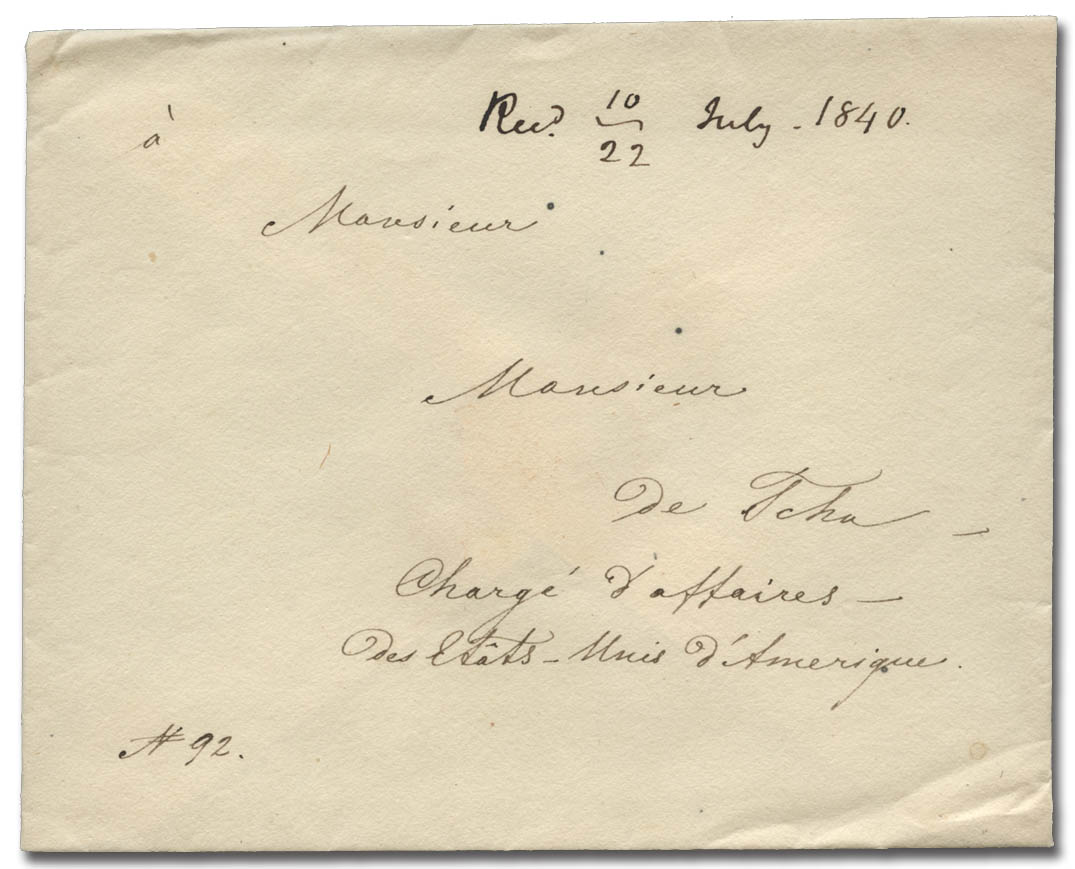 à
Recd. 10/22 July - 1840.
Monsieur
Monsieur
de Tcha -
Chargé d'affaires -
des Etâts-Unis d'Amerique.
N 92.